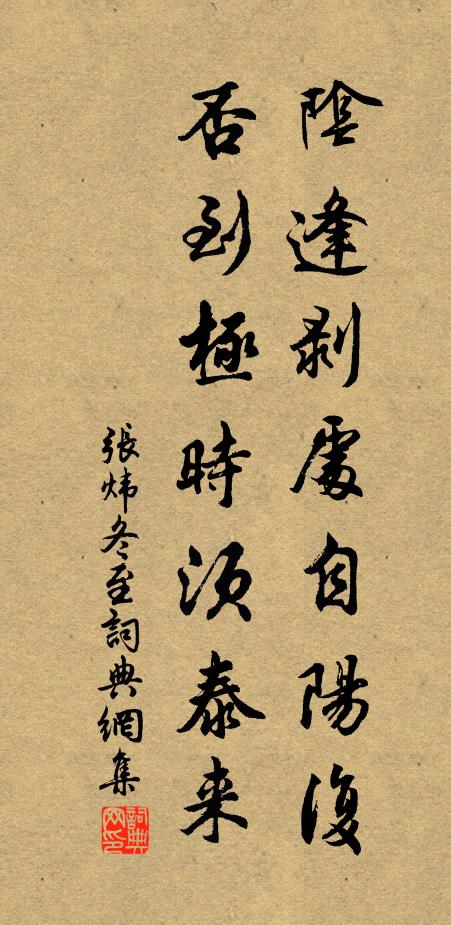 陰逢剥處自陽復
否到極時須泰来
張煒冬至詞典網集
詞典网印